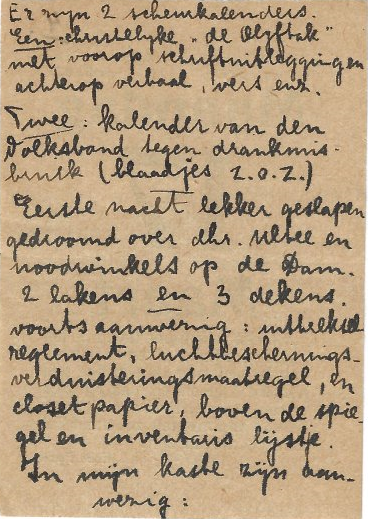 Er zijn 2 scheurkalenders.
Een: christelijke "de Olijftak"
met voorop schriftuitleggingen
achterop verhaal, vers enz.
Twee: kalender van den
Volksbond tegen drankmis-
bruik (blaadjes z.o.z.)
Eerste nacht lekker geslapen
gedroomd over dhr. Ultee en
noodwinkels op de Dam.
2 lakens en 3 dekens.
voorts aanwezig: uittreksel
reglement, luchtbeschermings-
verduisteringsmaatregel, en
closetpapier, boven de spie-
gel en inventaris lijstje.
In mijn kastje zijn aan-
wezig: